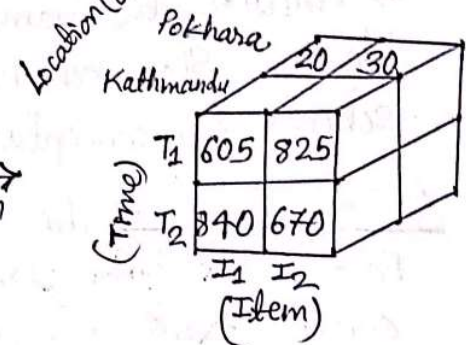 Location(
Pokhara
Kathmandu
20 30
T1 605 825
T2 840 670
(Time)
I1 I2
(Item)